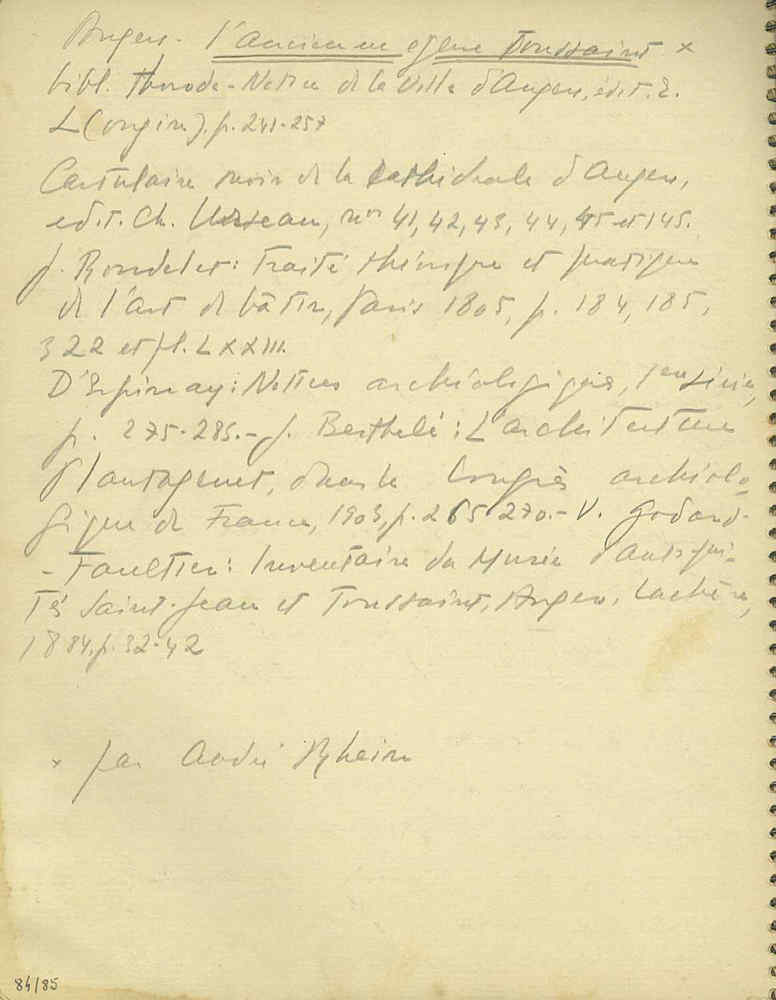 Angers - l'ancienne église Toussaint ×
bibl. Thorode - Notice de la ville d'Angers, édit. E.
L(ongin), p. 241-257
Cartulaire noir de la cathédrale d'Angers,
edit. Ch. Urseau, nos 41, 42, 43, 44, 45 et 145.
J. Rondelet: Traité théorique et pratique
de l'art de bâtir, Paris 1805, p. 184, 185,
322 et pl. LXXIII.
D'Espinay: Notices archéologiques, 1ère série,
p. 275-285. - J. Berthelé: L'architecture
Plantagenet, dans le Congrès archéolo-
gique de France, 1903, p. 265 270. - V. Godard-
- Faultier: Inventaire du Musée d'antiqui-
tés Saint-Jean et Toussaint, Angers, Lachèse,
1884, p. 32-42
× par André Rhein
84/85